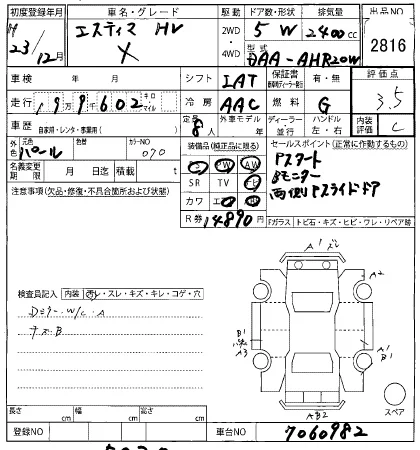 初度登録年月 車名・グレード 駆動 ドア数・形状 排気量 出品NO
H23/12月 エスティマ HV X 2WD・4WD 5 W 2400cc 2816
型式 DAA-AHR20W
車検 年 月 シフト IAT 保証書 有・無 評価点
走行 199602 キロ マイル 冷房 AAC 燃料 G 3.5
車歴 自家用・レンタ・事業用( ) 定員 8人 外車モデル 年 ディーラー 並行 ハンドル 左・右 内装評価 C
外色 元色 パール 色替 カラーNO 070
装備品(純正品に限る) セールスポイント(正常に作動するもの)
名義変更期限 月 日迄 積載 t
PW AW Pスタート
SR TV ナビ Bモニター
注意事項(欠品・修復・不具合箇所および状態)
カワ 両側Pスライドドア
R券 14890円 Fガラス トビ石・キズ・ヒビ・ワレ・リペア跡
A1 ズレ
A2
検査員記入 内装 汚レ・スレ・キズ・キレ・コゲ・穴
Dミラー W/C.A
B1
A3
A1
B1
AB2
スペア
長さ cm 幅 cm 高さ cm
登録NO 車台NO 7060982